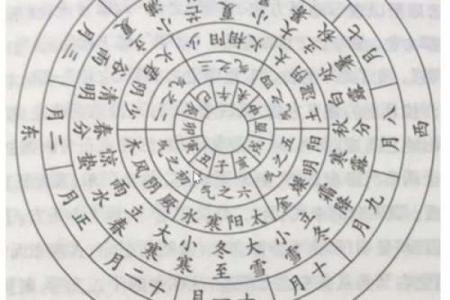 东
西
正月
二月
三月
七月
八月
九月
十月
十一月
十二月
大寒
立春
雨水
惊蛰
春分
清明
谷雨
立夏
小满
小暑
大暑
立秋
处暑
白露
秋分
寒露
霜降
立冬
小雪
大雪
冬至
小寒
厥阴风木
少阴君火
少阳相火
太阴湿土
阳明燥金
太阳寒水
初之气
二之气
三之气
四之气
五之气
六之气
子
丑
寅
卯
辰
巳
午
未
申
酉
戌
亥